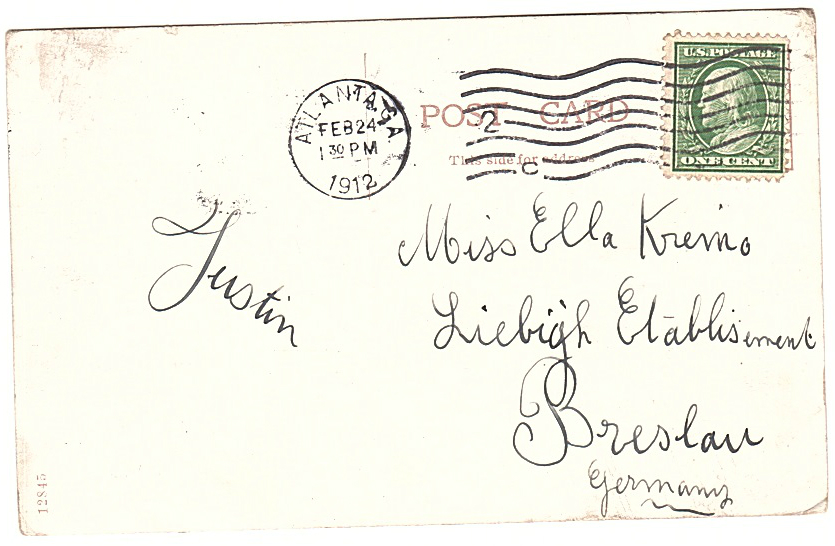 U.S. POSTAGE
ONE CENT
ATLANTA, GA.
FEB 24
1 30 PM
1912
2
C
POST CARD
This side for address
Justin
Miss Ella Kremo
Liebigh Etablisement
Breslau
Germany
12845